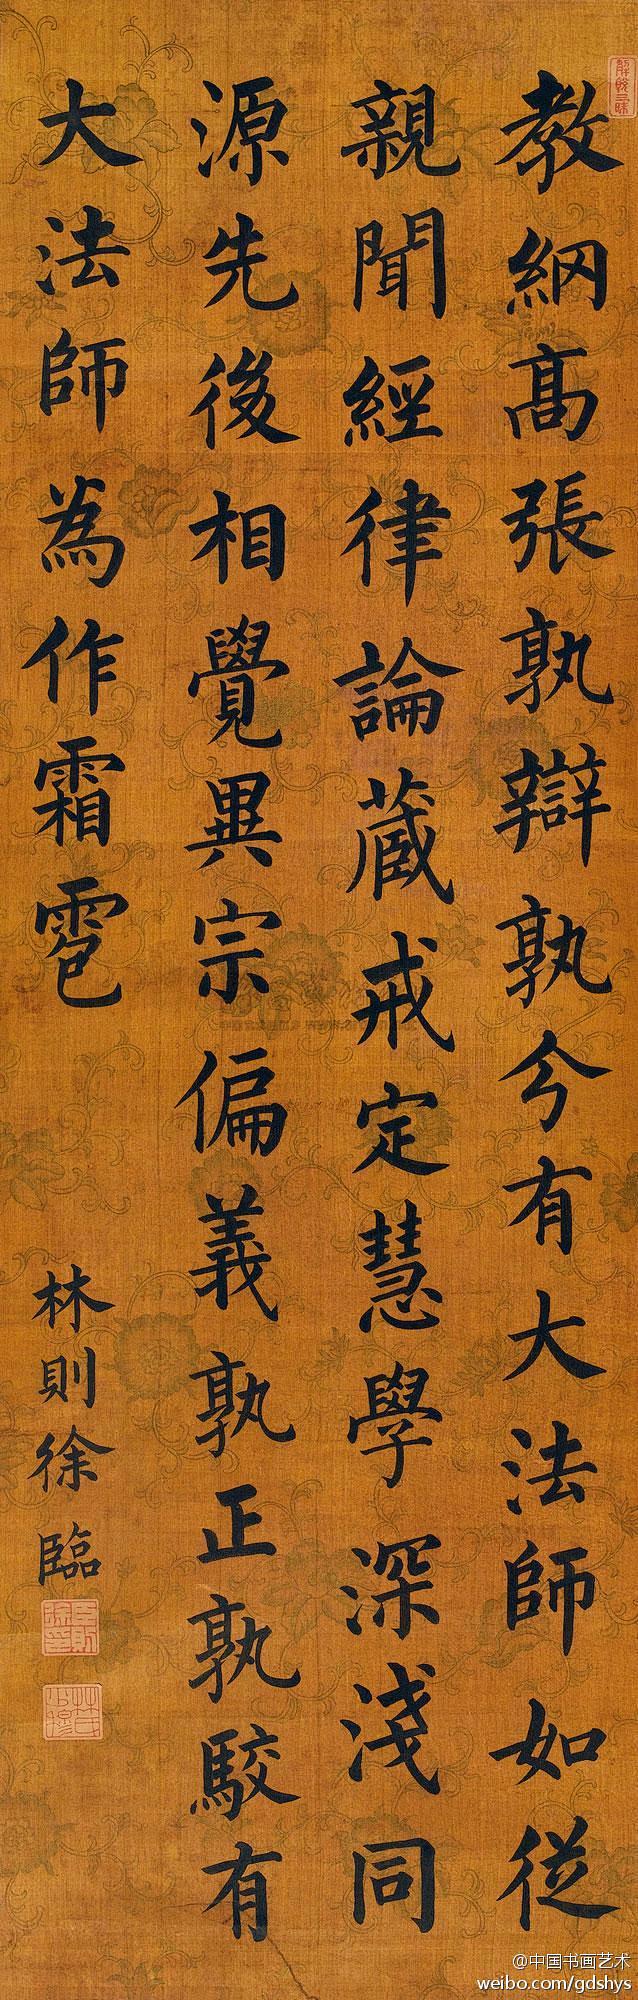 教網高張孰辯孰分有大法師如從
親聞經律論藏戒定慧學深淺同
源先後相覺異宗偏義孰正孰駮有
大法師為作霜雹
林則徐臨
@中国书画艺术
weibo.com/gdshys